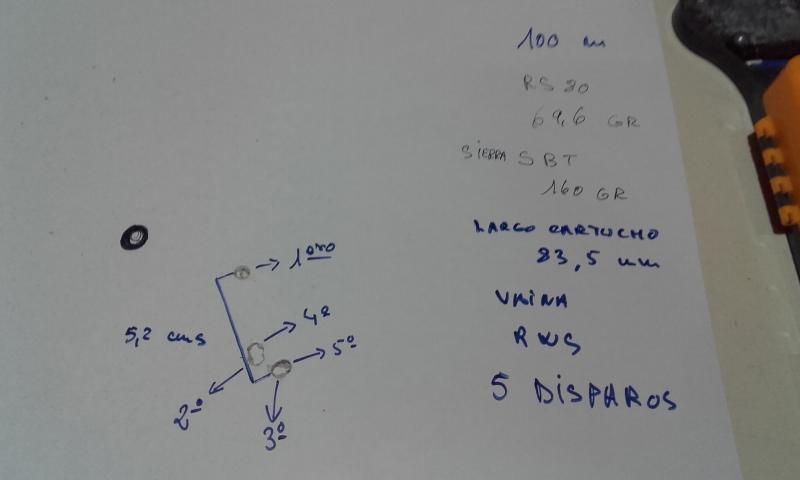 100 m
RS 80
69,6 GR
SIERRA SBT
160 GR
LARGO CARTUCHO
83,5 mm
VAINA
RWS
5 DISPAROS
1ero
4º
5,2 cms
5º
2º
3º